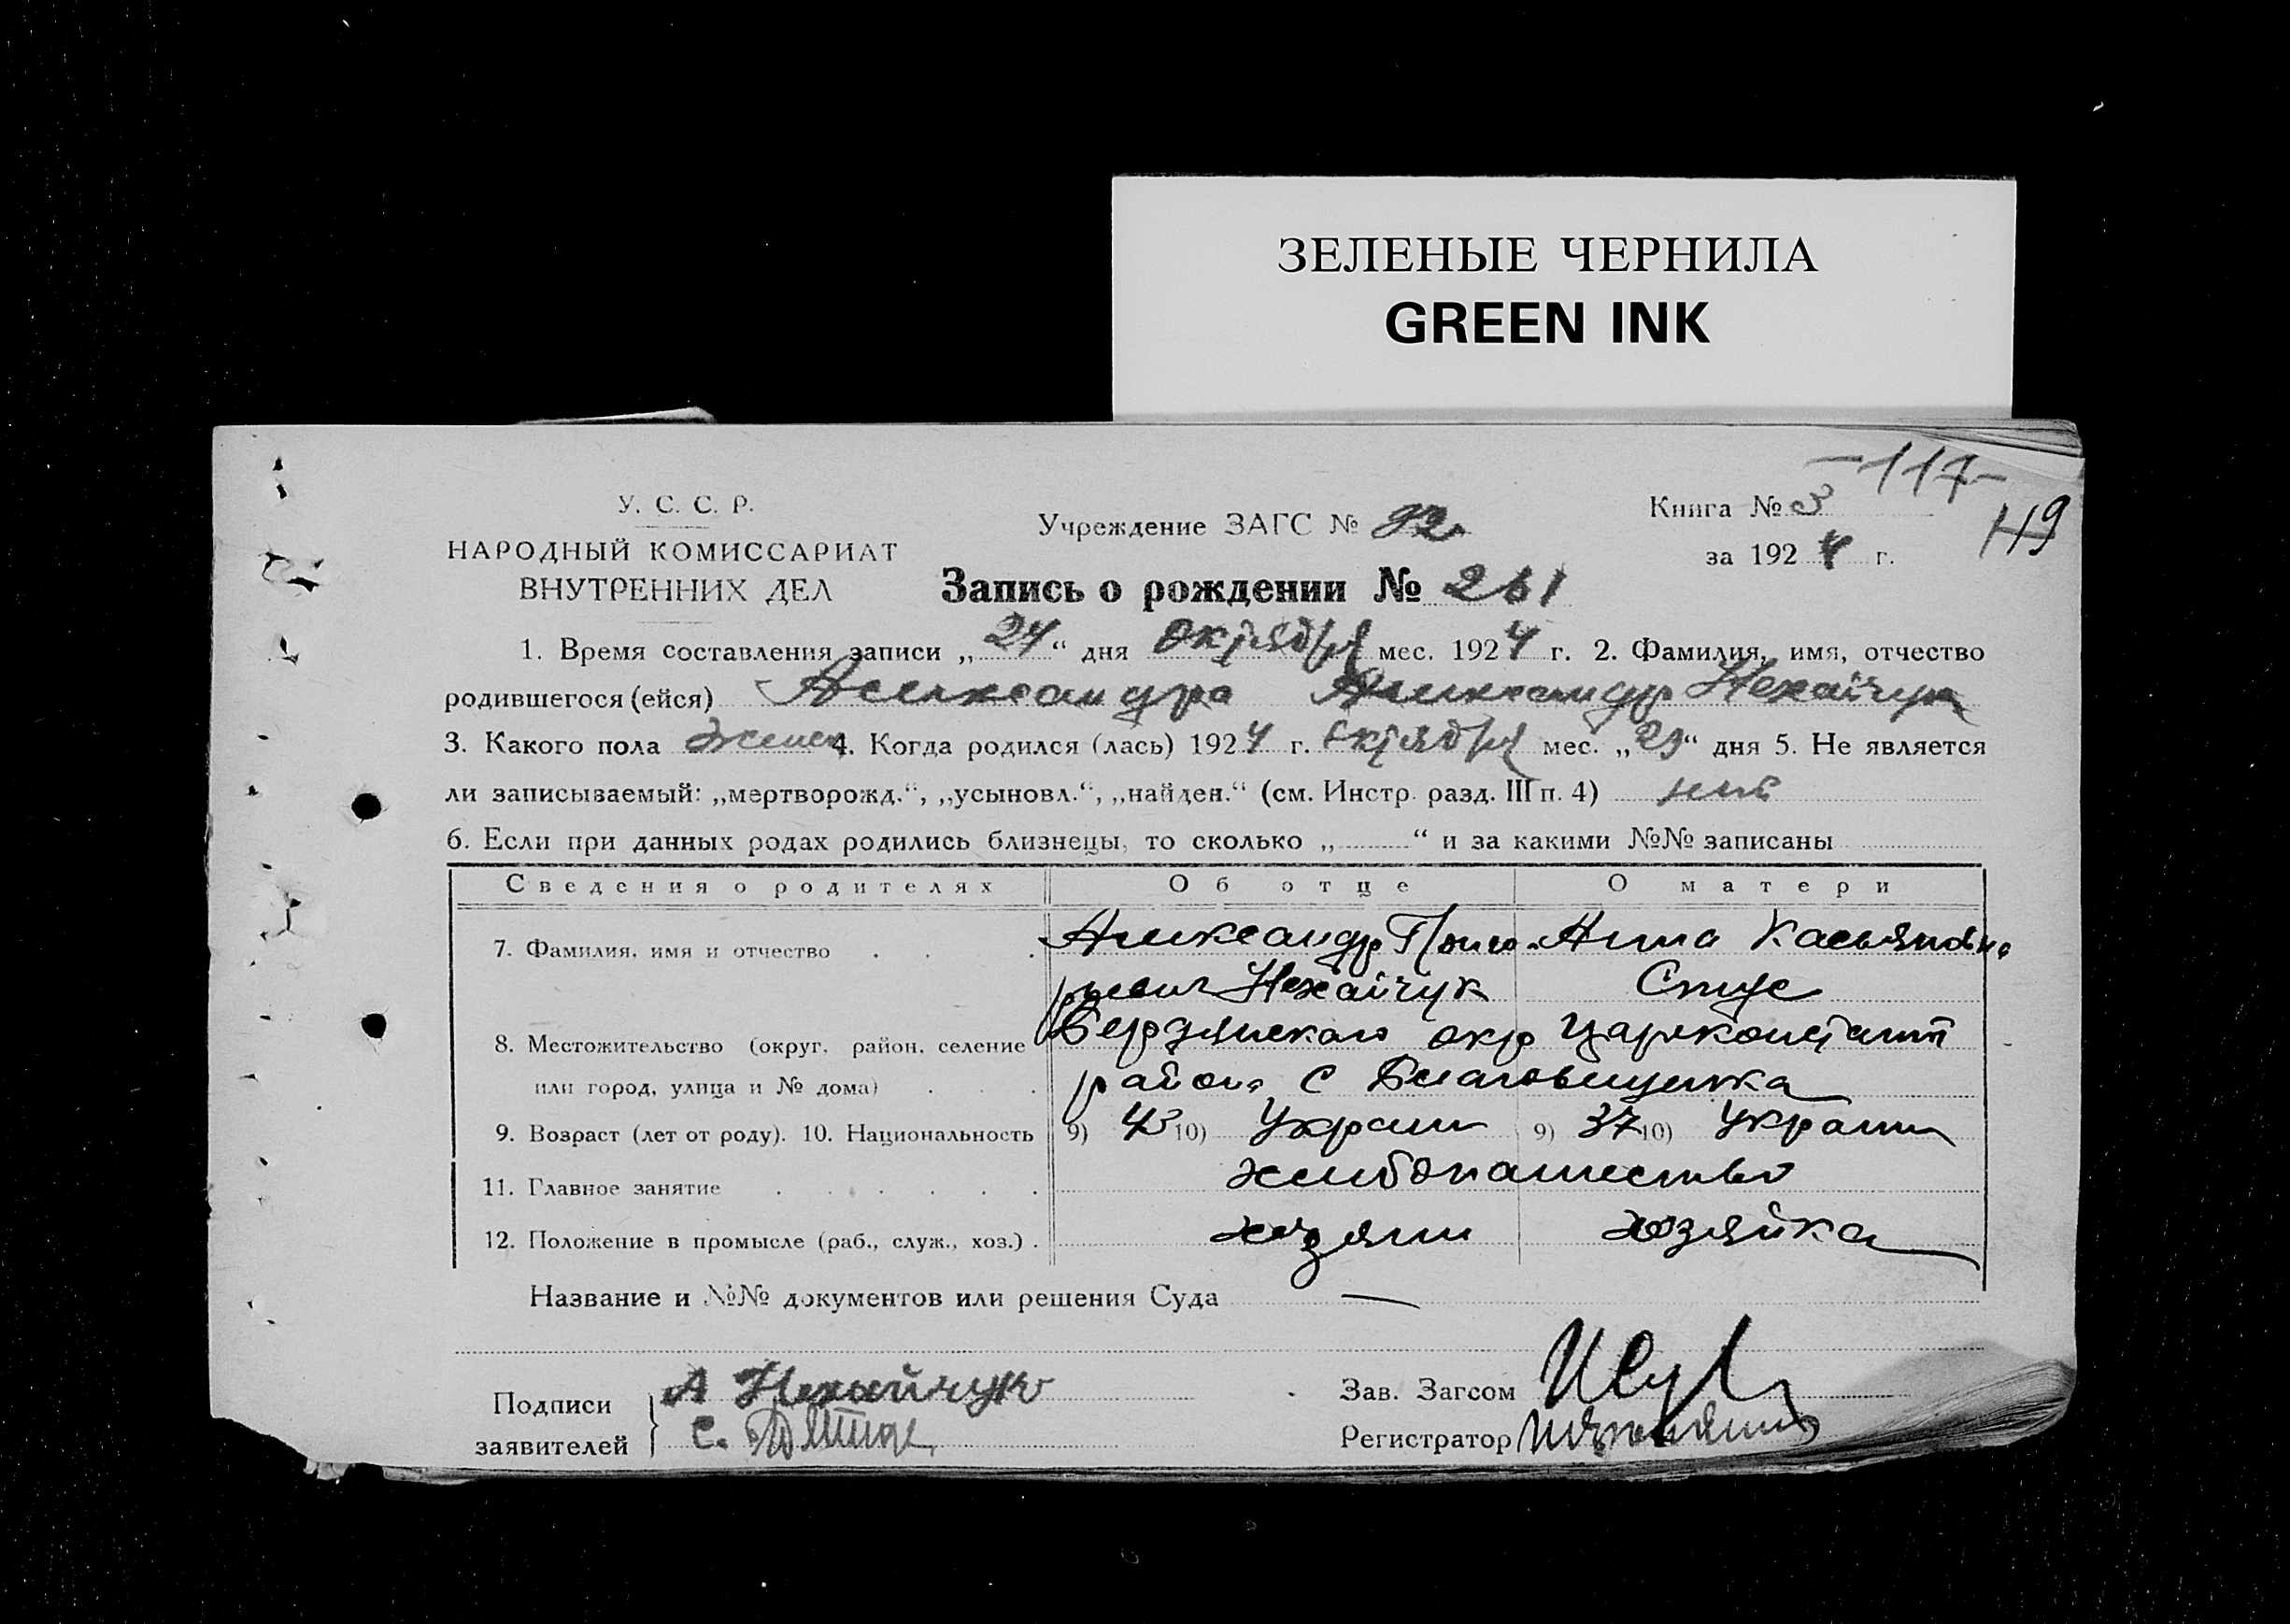 ЗЕЛЕНЫЕ ЧЕРНИЛА
GREEN INK
-117-
119
У. С. С. Р.
НАРОДНЫЙ КОМИССАРИАТ
ВНУТРЕННИХ ДЕЛ
Учреждение ЗАГС № 92
Книга № 3
за 1924 г.
Запись о рождении № 261
1. Время составления записи „24“ дня октября мес. 1924 г. 2. Фамилия, имя, отчество
родившегося (ейся) Александра Александр Нехайчук
3. Какого пола женск 4. Когда родился (лась) 1924 г. октября мес. „23“ дня 5. Не является
ли записываемый: „мертворожд.“, „усыновл.“, „найден.“ (см. Инстр. разд. III п. 4) нет
6. Если при данных родах родились близнецы, то сколько „ “ и за какими №№ записаны
Сведения о родителях Об отце О матери
7. Фамилия, имя и отчество Александр Григо- Анна Касьяновна
рьевич Нехайчук Стус
8. Местожительство (округ, район, селение Бердянского окр Цареконстант
или город, улица и № дома) района с Благовещенка
9. Возраст (лет от роду). 10. Национальность 9) 43 10) Украин 9) 37 10) Украин
11. Главное занятие хлебопашество
12. Положение в промысле (раб., служ., хоз.) хозяин хозяйка
Название и №№ документов или решения Суда —
Подписи А Нехайчук
заявителей С.
Зав. Загсом
Регистратор